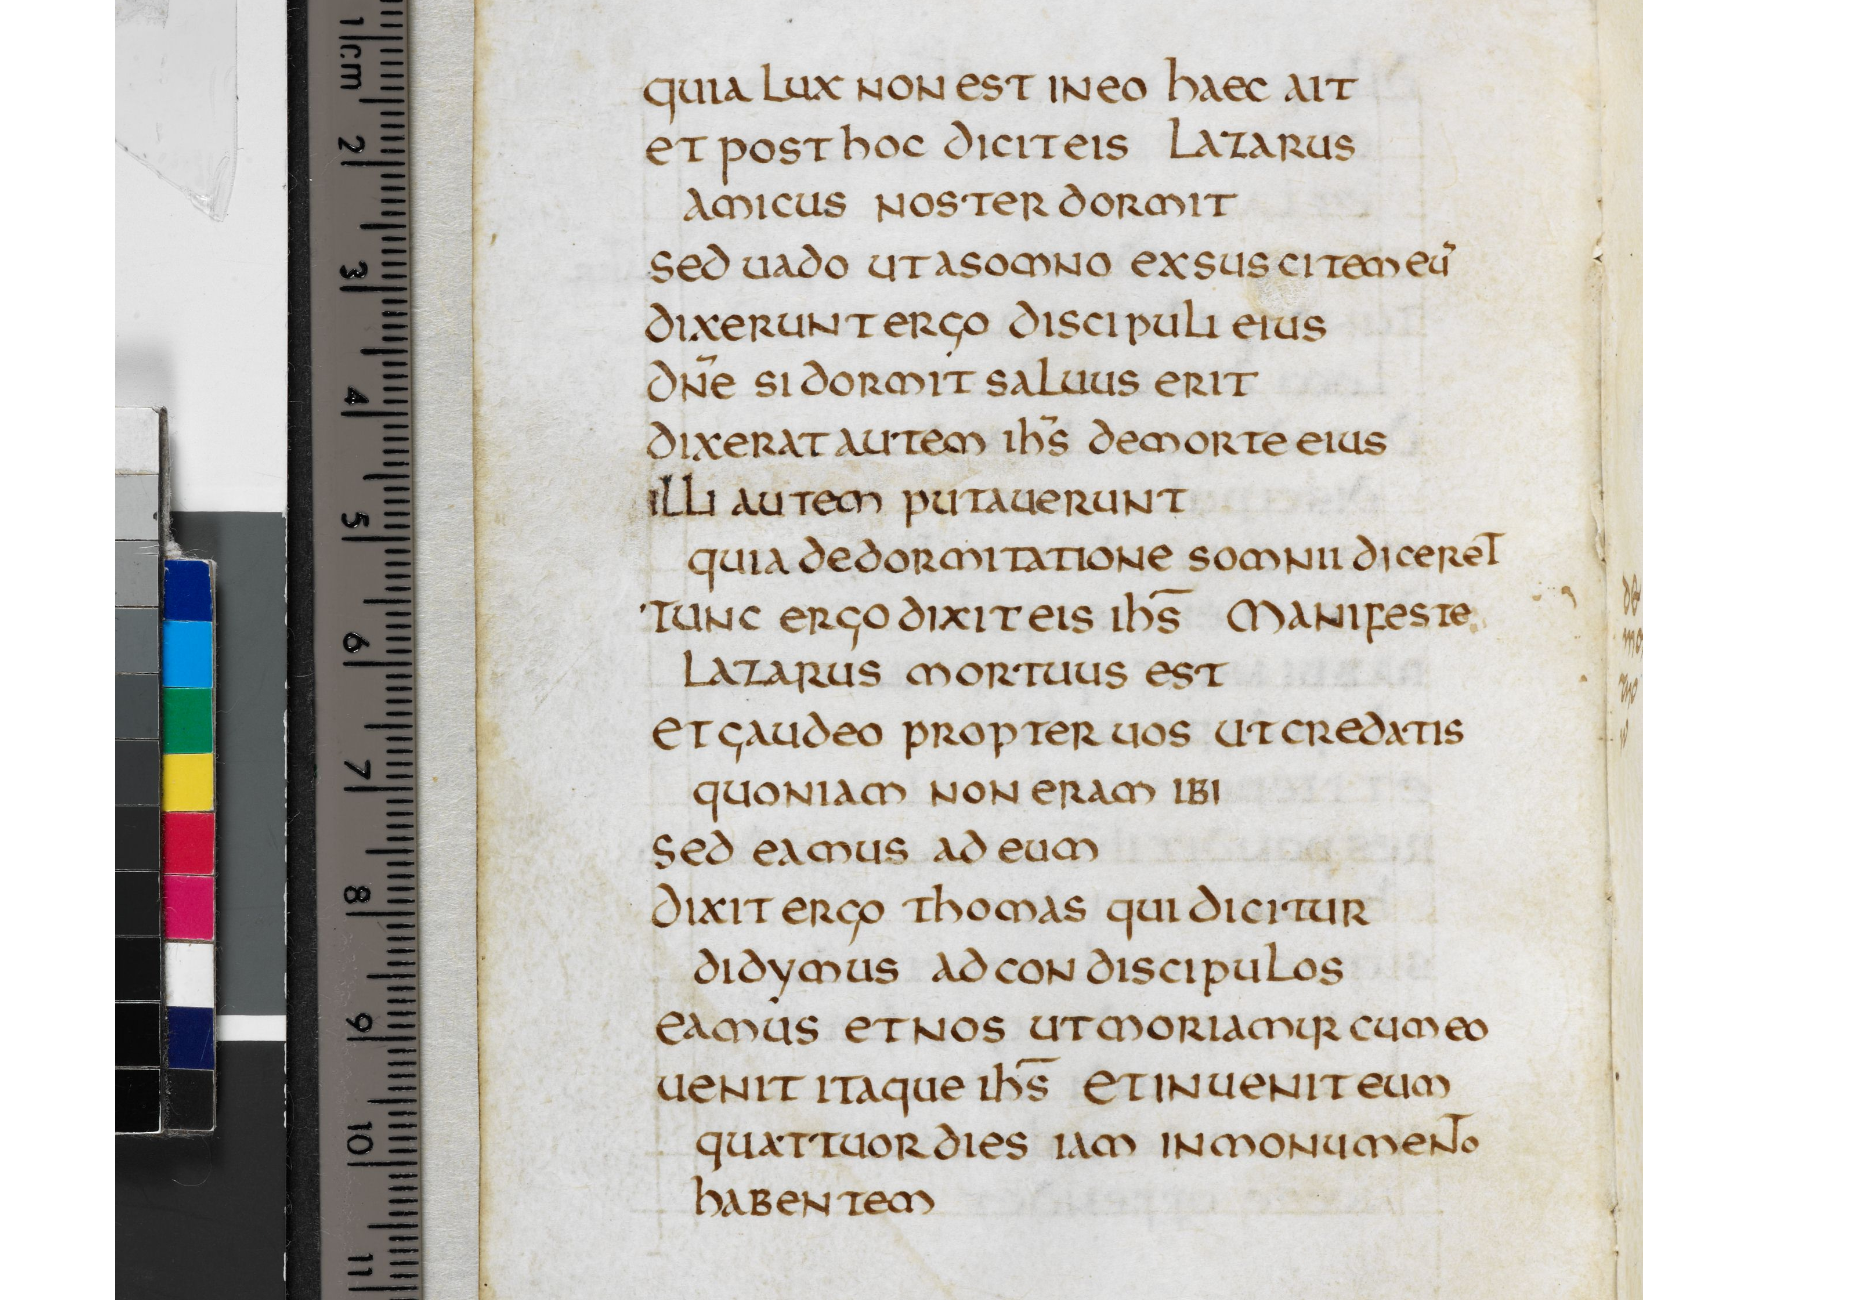 quia lux non est in eo haec ait
et post hoc dicit eis Lazarus
amicus noster dormit
sed uado ut a somno exsuscitem eū
dixerunt ergo discipuli eius
dn̄e si dormit saluus erit
dixerat autem ihs̄ de morte eius
illi autem putauerunt
quia de dormitatione somnii diceret
Tunc ergo dixit eis ihs̄ Manifeste
Lazarus mortuus est
et gaudeo propter uos ut credatis
quoniam non eram ibi
sed eamus ad eum
dixit ergo thomas qui dicitur
didymus ad condiscipulos
eamus et nos ut moriamur cum eo
uenit itaque ihs̄ Et inuenit eum
quattuor dies iam in monumento
habentem
1 cm
2
3
4
5
6
7
8
9
10
11